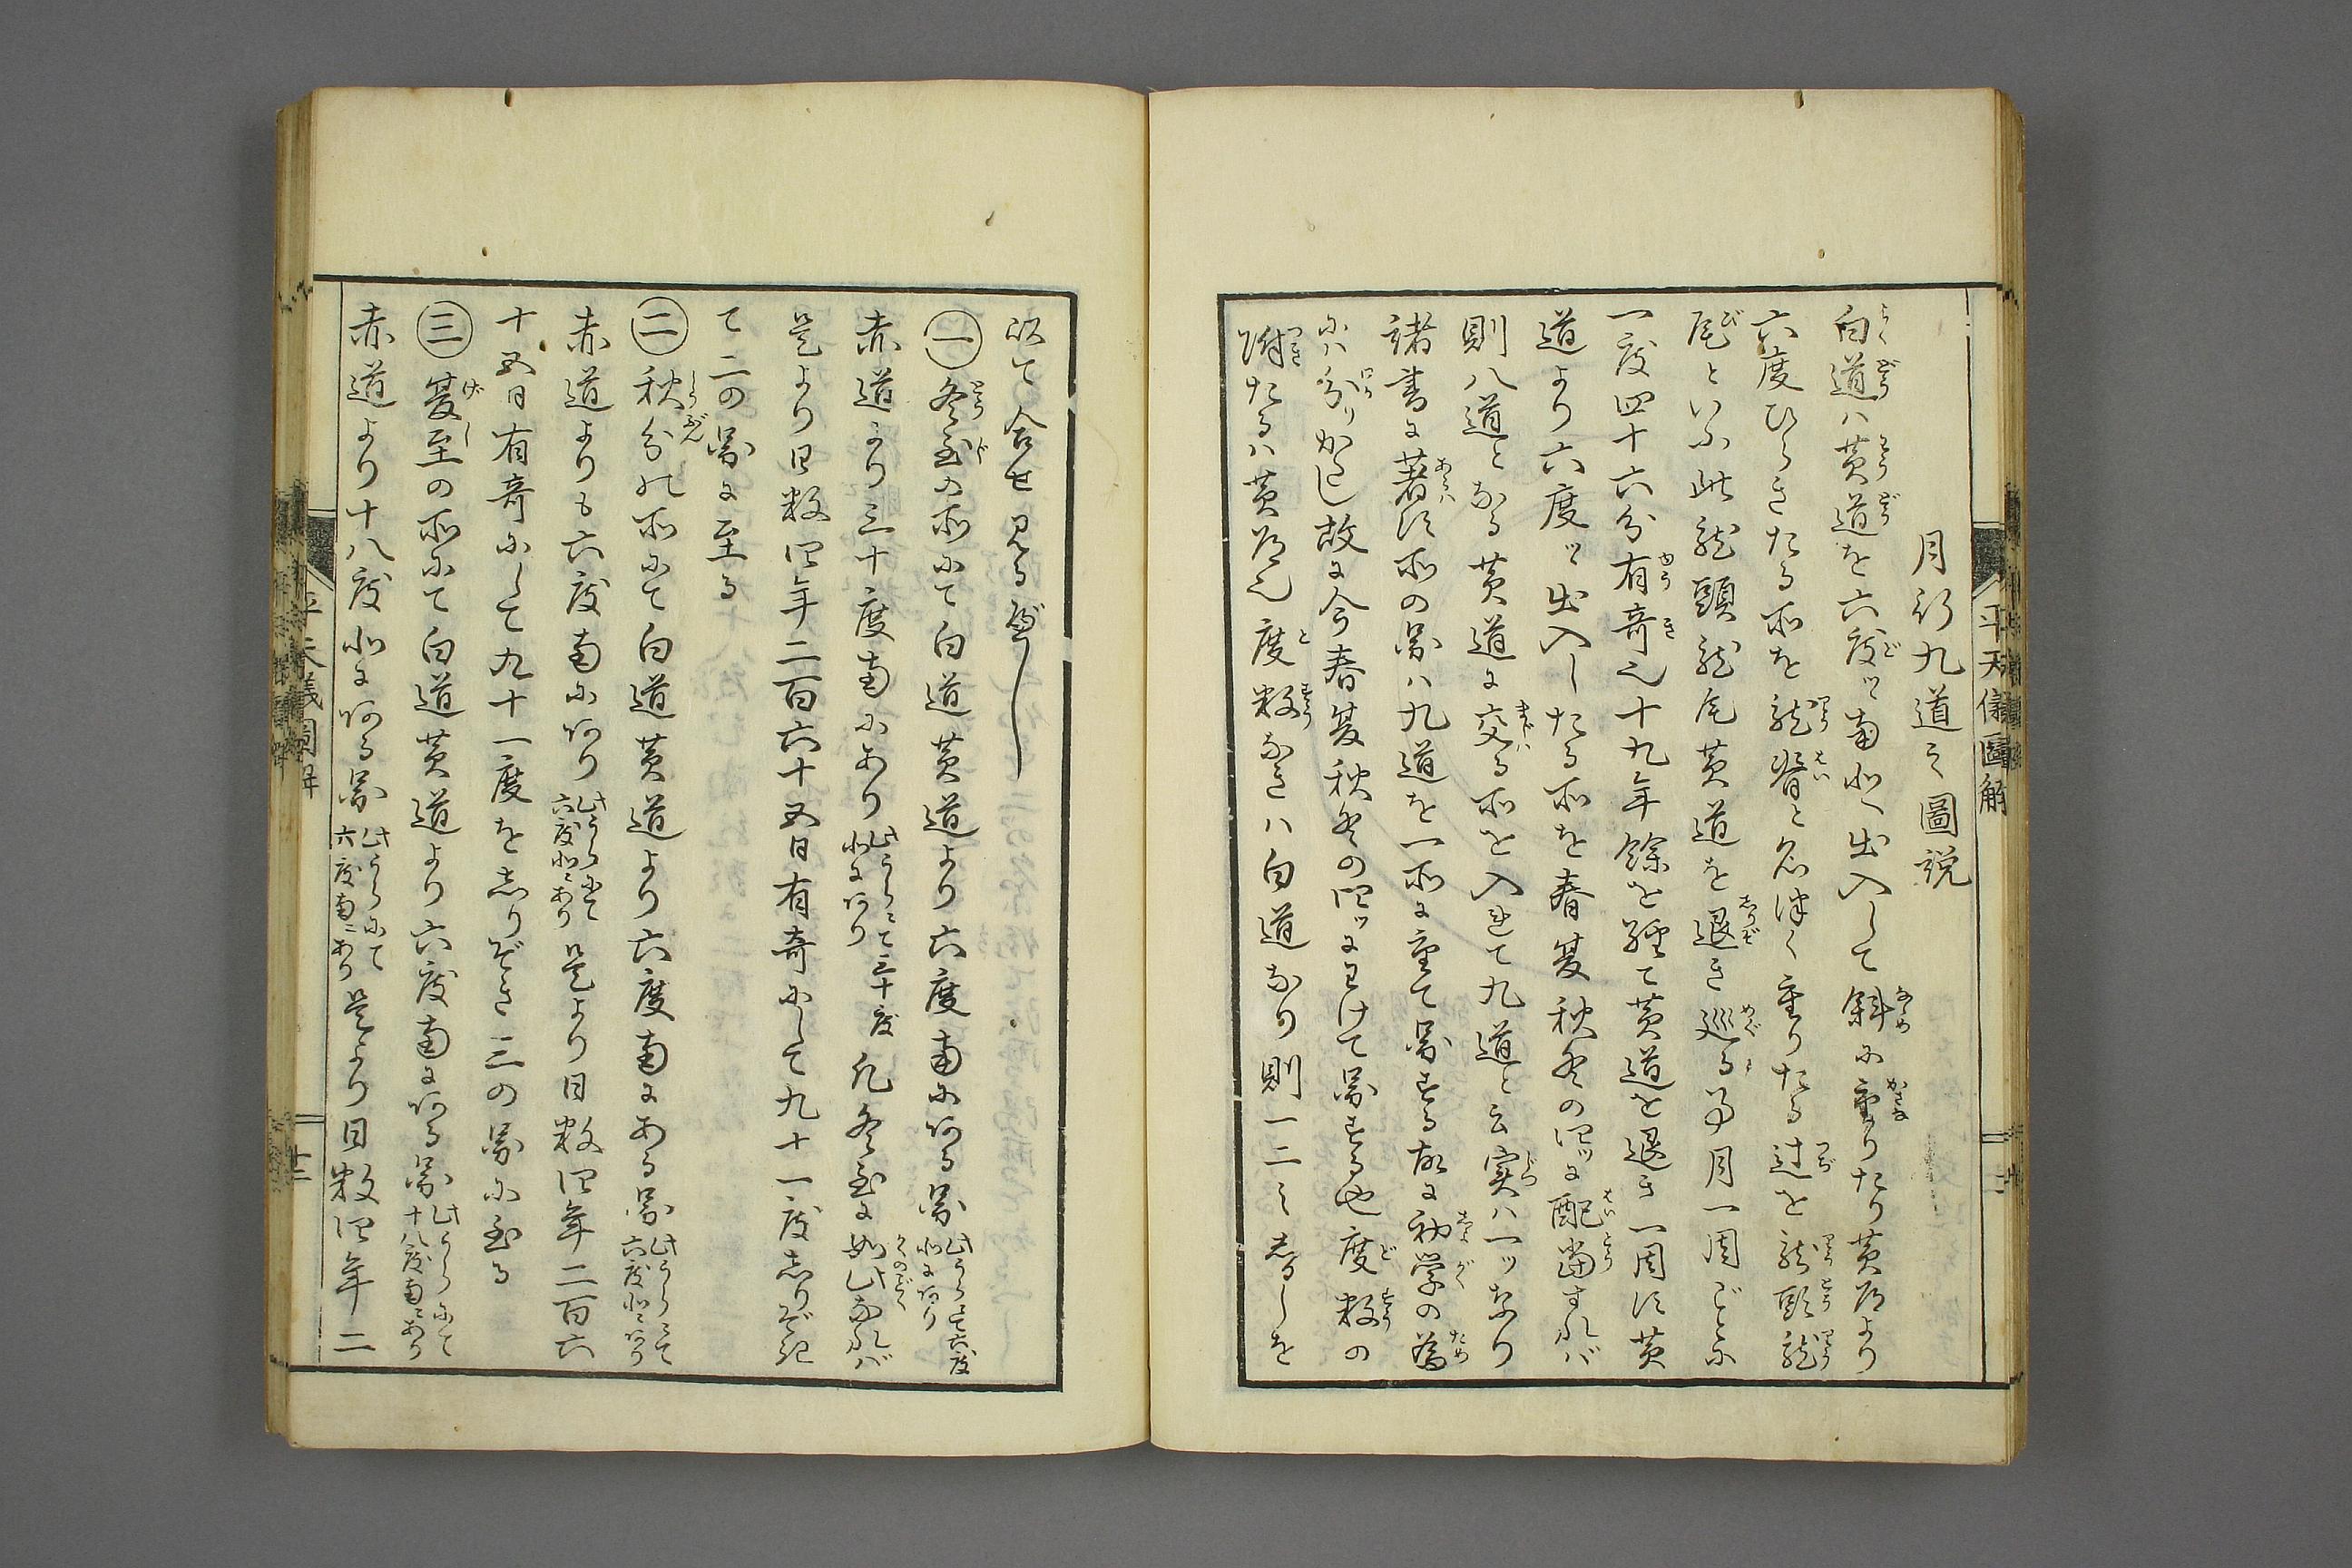 月行九道之圖説
白道ハ黄道を六度ヅヽ南北へ出入して斜に重りたり黄道より
六度ひらきたる所を龍背と名付く重りたる辻を龍頭龍
尾といふ此龍頭龍尾黄道を退き巡る事月一周ごとに
一度四十六分有奇也十九年餘を経て黄道を退き一周す黄
道より六度ヅヽ出入したる所を春夏秋冬の四ツに配當すれバ
則八道となる黄道に交る所を入まて九道と云実ハ一ツなり
諸書に著す所の圖ハ九道を一所に重て圖する故に初学の為
にハ分りかたし故に今春夏秋冬の四ツにわけて圖する也度数の
附たるハ黄道也度数なきハ白道なり則一二之しるしを
以て合せ見る べし
㊀冬至の所にて白道黄道より六度南にある圖此うらにて六度北にあり
赤道より三十度南にあり此うらにて三十度北にあり 凡冬至に如此なれバ
是より日数四年二百六十五日有奇にして九十一度しりぞき
て二の圖に至る
㊁秋分の所にて白道黄道より六度南にある圖此うらにて六度北にあり
赤道よりも六度南にあり此うらにて六度北にあり 是より日数四年二百六
十五日有奇にして九十一度をしりぞき三の圖に至る
㊂夏至の所にて白道黄道より六度南にある圖此うらにて十八度南にあり
赤道より十八度北にある圖此うらにて六度南にあり 是より日数四年二
平天儀圖解